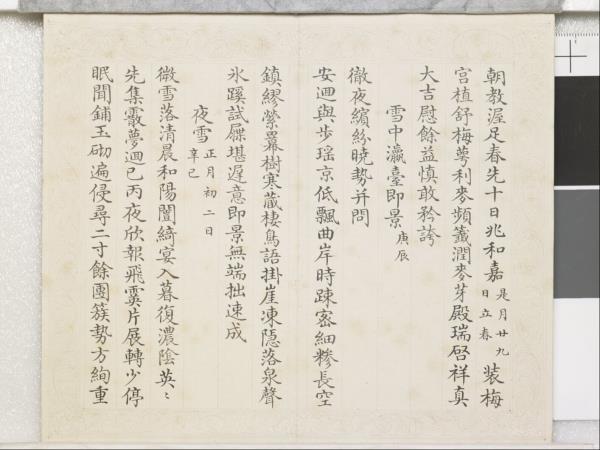 朝教渥足春先十日兆和嘉是月廿九日立春装梅
宫植舒梅萼利麥頻籤潤麥芽殿瑞啓祥真
大吉慰餘益慎敢矜誇
雪中瀛臺即景庚辰
徹夜繽紛曉勢并問
安迴與步瑶京低飄曲岸時踈密細糝長空
鎮繆縈羃樹寒蔵棲鳥語掛崖凍隠落泉聲
氷蹊試屧堪遲意即景無端拙速成
夜雪正月初二日辛巳
微雪落清晨和陽闓綺宴入暮復濃陰英〻
先集霰夢迴已丙夜欣報飛霙片展轉少停
眠聞鋪玉砌遍侵尋二寸餘團簇勢方絢重